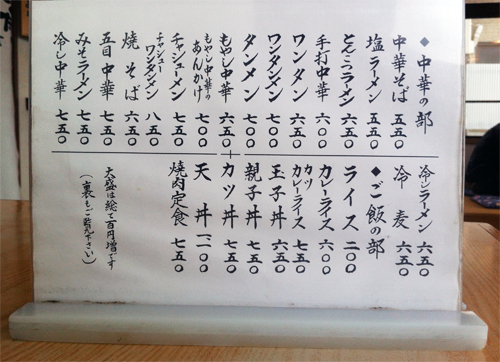 ◆中華の部
中華そば 五五〇
塩ラーメン 五五〇
とんこつラーメン 六五〇
手打中華 六〇〇
ワンタン 六〇〇
ワンタンメン 七〇〇
タンメン 七〇〇
もやし中華 六五〇
もやし中華のあんかけ 七〇〇
チャシューメン 七五〇
チャシューワンタンメン 八五〇
焼そば 六五〇
五目中華 七五〇
みそラーメン 七五〇
冷し中華 七五〇
冷しラーメン 六五〇
冷麦 六五〇
◆ご飯の部
ライス 二〇〇
カレーライス 六〇〇
カツカレーライス 七五〇
玉子丼 六五〇
親子丼 七五〇
カツ丼 七五〇
天丼 一一〇〇
焼肉定食 七五〇
大盛は総て百円増です
(裏もご覧下さい)